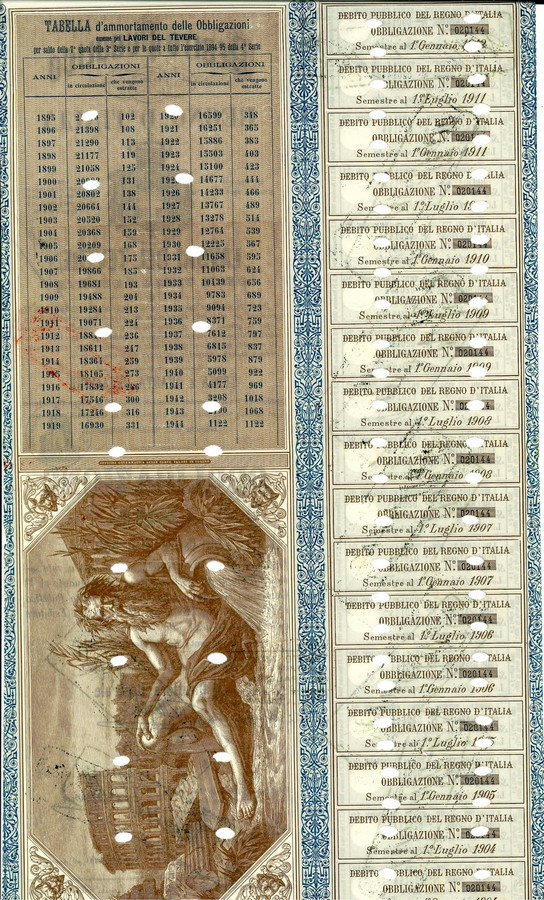 TABELLA d'ammortamento delle Obbligazioni
emesse pei LAVORI DEL TEVERE
per saldo della 7ª quota della 3ª Serie e per le quote a tutto l'esercizio 1894-95 della 4ª Serie
ANNI OBBLIGAZIONI ANNI OBBLIGAZIONI
in circolazione che vengono estratte in circolazione che vengono estratte
1895 102 16599 348
1896 21398 108 1921 16251 365
1897 21290 113 1922 15886 383
1898 21177 119 1923 15503 403
1899 21058 125 1924 15100 423
1900 131 14677 444
1901 20802 138 1926 14233 466
1902 20664 144 1927 13767 489
1903 20520 152 1928 13278 514
1904 20368 159 1929 12764 539
1905 20209 168 1930 12225 567
1906 175 11658 595
1907 19866 185 1932 11063 624
1908 19681 193 1933 10439 656
1909 19488 204 1934 9783 689
1910 19284 213 1935 9094 723
1911 19071 224 1936 8371 759
1912 236 1937 7612 797
1913 18611 247 1938 6815 837
1914 18364 259 1939 5978 879
1915 18105 273 1940 5099 922
1916 17832 286 1941 4177 969
1917 17546 300 1942 3208 1018
1918 17246 316 1943 1068
1919 16930 331 1944 1122 1122
DEBITO PUBBLICO DEL REGNO D'ITALIA
OBBLIGAZIONE N.º 020144
Semestre al 1º Gennaio
DEBITO PUBBLICO DEL REGNO D'ITALIA
OBBLIGAZIONE N.º 020144
Semestre al 1º Luglio 1911
DEBITO PUBBLICO DEL REGNO D'ITALIA
OBBLIGAZIONE N.º
Semestre al 1º Gennaio 1911
DEBITO PUBBLICO DEL REGNO D'ITALIA
OBBLIGAZIONE N.º 020144
Semestre al 1º Luglio
DEBITO PUBBLICO DEL REGNO D'ITALIA
OBBLIGAZIONE N.º
Semestre al 1º Gennaio 1910
DEBITO PUBBLICO DEL REGNO D'ITALIA
OBBLIGAZIONE N.º
Semestre al 1º Luglio 1909
DEBITO PUBBLICO DEL REGNO D'ITALIA
OBBLIGAZIONE N.º 020144
Semestre al 1º Gennaio 1909
DEBITO PUBBLICO DEL REGNO D'ITALIA
OBBLIGAZIONE N.º
Semestre al 1º Luglio 1908
DEBITO PUBBLICO DEL REGNO D'ITALIA
OBBLIGAZIONE N.º 020144
Semestre al 1º Gennaio
DEBITO PUBBLICO DEL REGNO D'ITALIA
OBBLIGAZIONE N.º 020144
Semestre al 1º Luglio 1907
DEBITO PUBBLICO DEL REGNO D'ITALIA
OBBLIGAZIONE N.º
Semestre al 1º Gennaio 1907
DEBITO PUBBLICO DEL REGNO D'ITALIA
OBBLIGAZIONE N.º 020144
Semestre al 1º Luglio 1906
DEBITO PUBBLICO DEL REGNO D'ITALIA
OBBLIGAZIONE N.º 020144
Semestre al 1º Gennaio 1906
DEBITO PUBBLICO DEL REGNO D'ITALIA
OBBLIGAZIONE N.º 020144
Semestre al 1º Luglio
DEBITO PUBBLICO DEL REGNO D'ITALIA
OBBLIGAZIONE N.º 020144
Semestre al 1º Gennaio 1905
DEBITO PUBBLICO DEL REGNO D'ITALIA
OBBLIGAZIONE N.º
Semestre al 1º Luglio 1904
DEBITO PUBBLICO DEL REGNO D'ITALIA
OBBLIGAZIONE N.º 020144